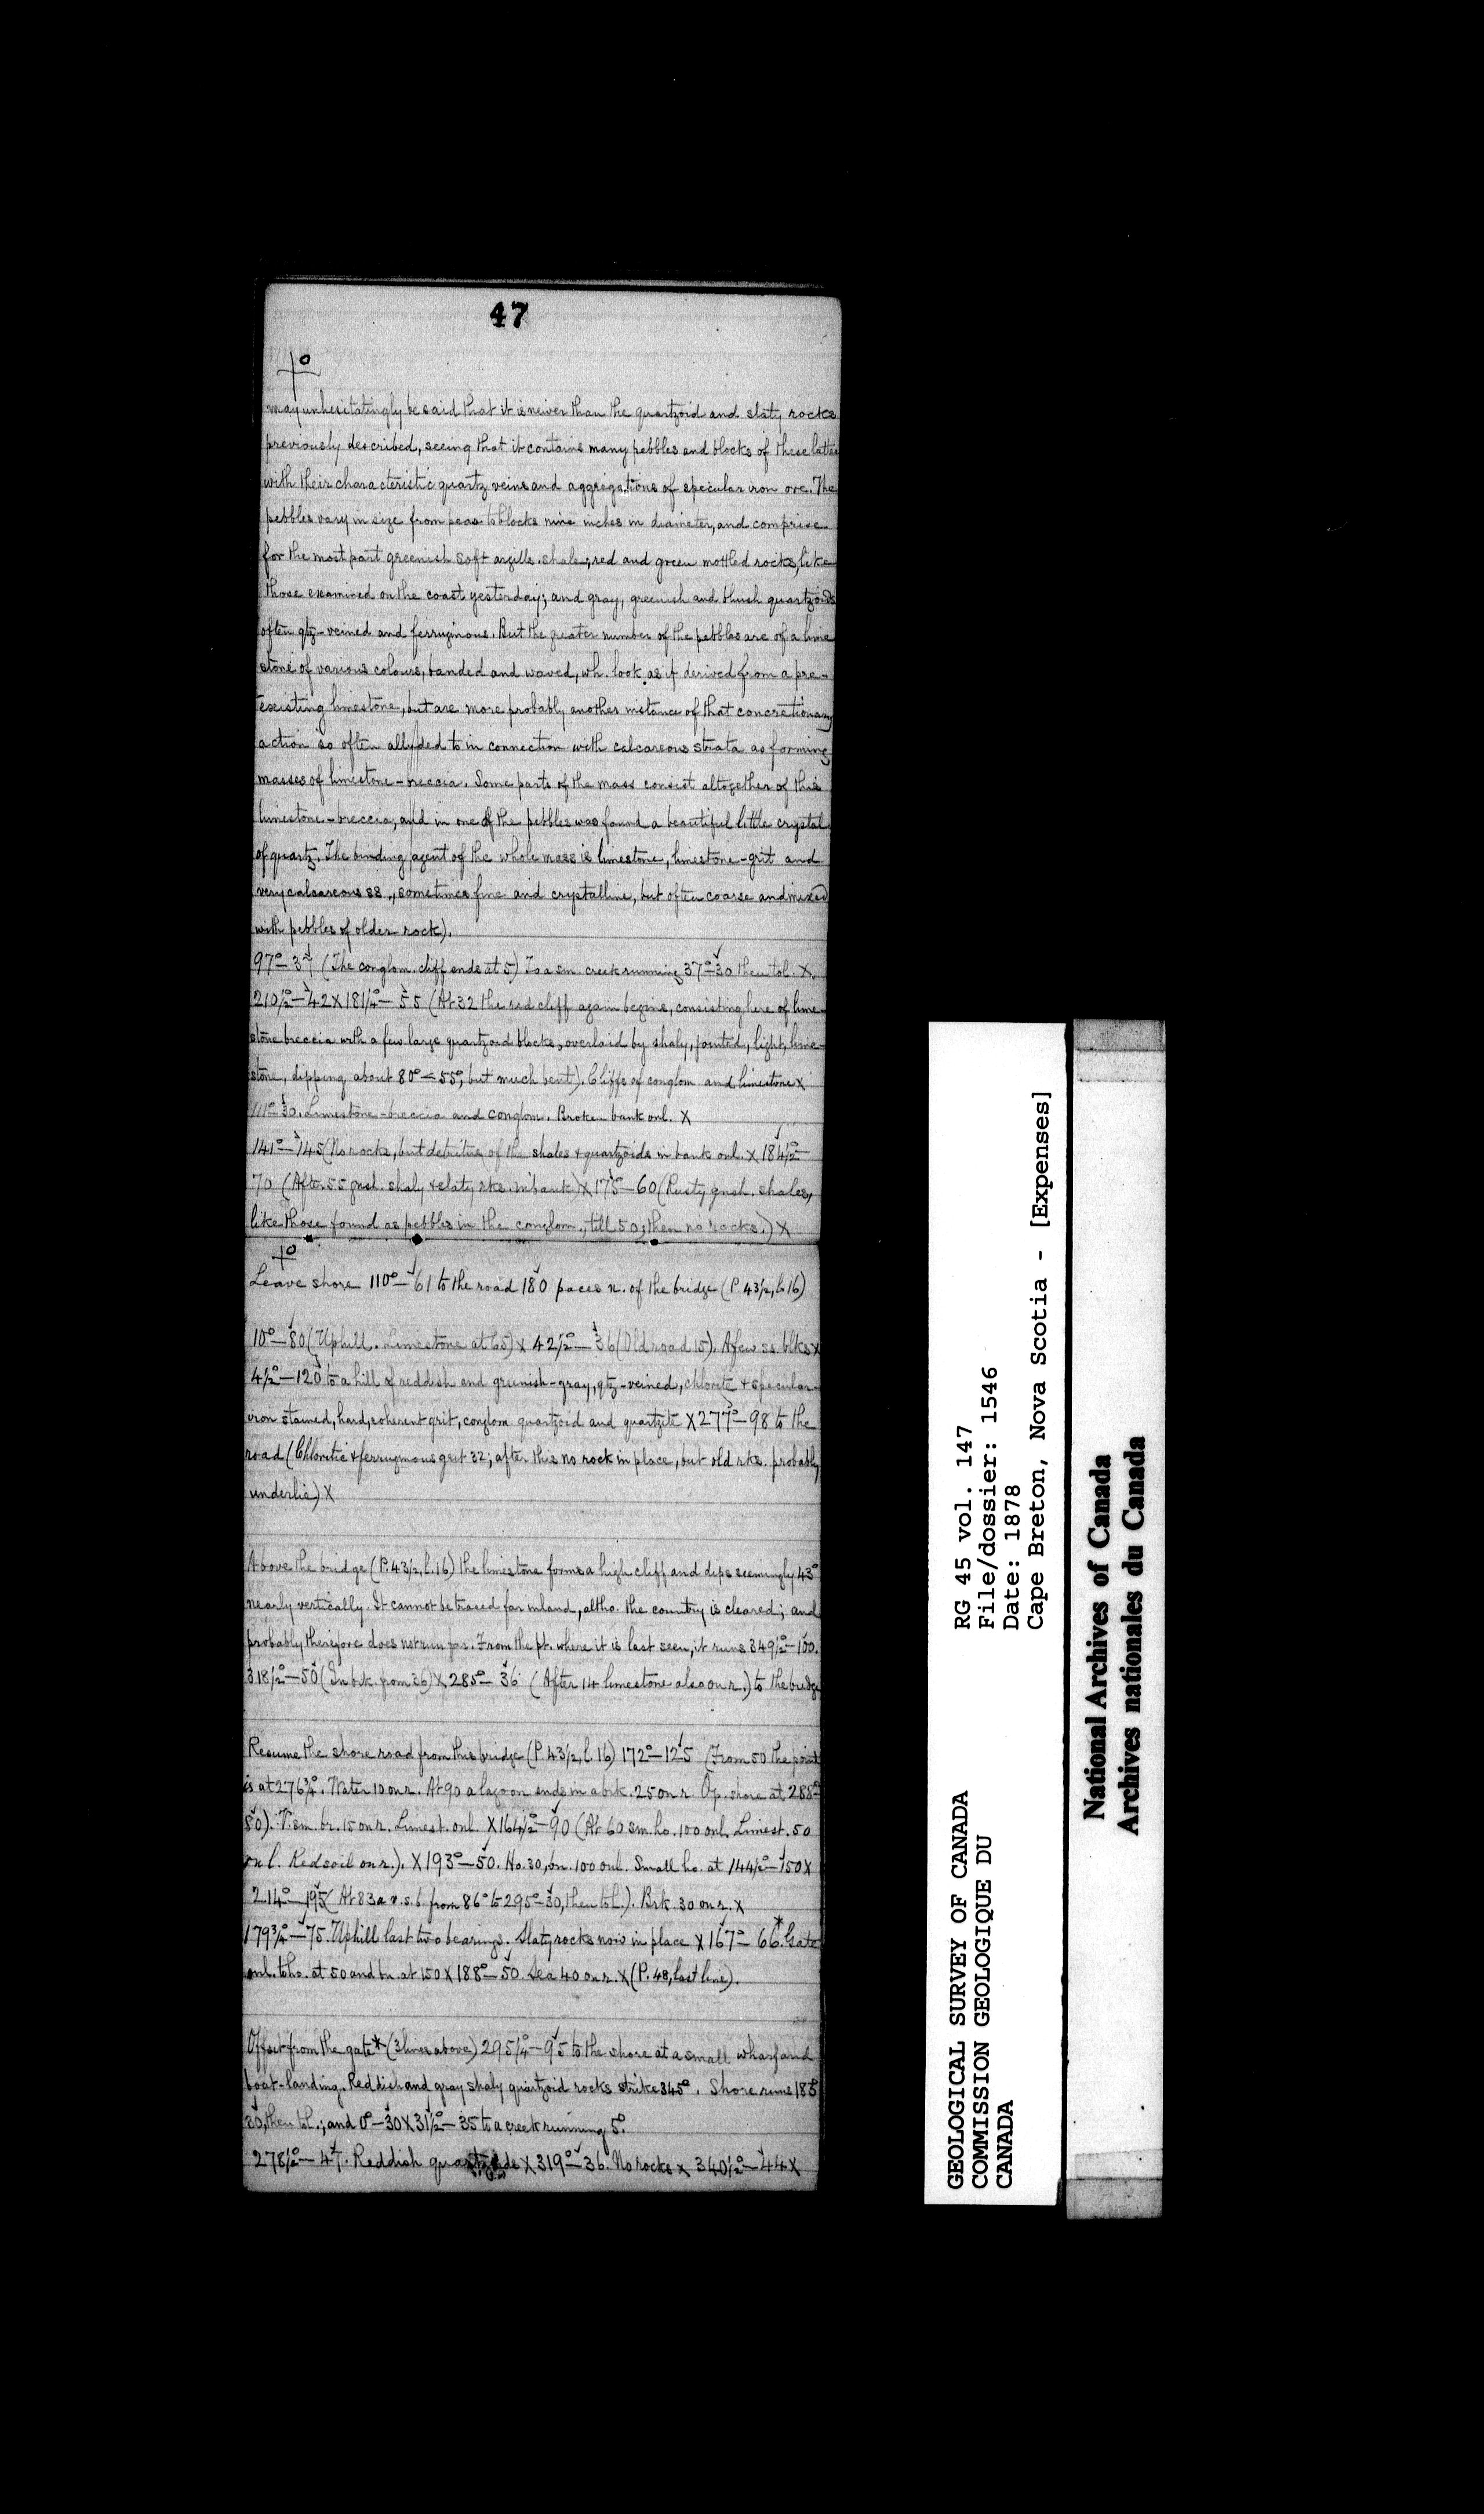 47
may unhesitatingly be said that it is newer than the quartzoid and slaty rocks
previously described, seeing that it contains many pebbles and blocks of these latter
with their characteristic quartz veins and aggregations of specular iron ore. The
pebbles vary in size from peas to blocks nine inches in diameter, and comprise
for the most part greenish soft argills. shale; red and green mottled rocks, like
those examined on the coast yesterday; and gray, greenish and bluish quartzoids
often qtz-veined and ferruginous. But the greater number of the pebbles are of a lime
stone of various colours, banded and waved, wh. look as if derived from a pre-
existing limestone, but are more probably another instance of that concretionary
action so often alluded to in connection with calcareous strata as forming
masses of limestone-breccia. Some parts of the mass consist altogether of this
limestone-breccia, and in one of the pebbles was found a beautiful little crystal
of quartz. The binding agent of the whole mass is limestone, limestone-grit and
very calcareous ss., sometimes fine and crystalline, but often coarse and mixed
with pebbles of older rock).
97°—37 (The conglom. cliff ends at 5) To a sm. creek running 37°—30 then to l. X
210½°—42 X 181¼°—55 (At 32 the red cliff again begins, consisting here of lime-
stone breccia with a few large quartzoid blocks, overlaid by shaly, jointed, light, lime-
stone, dipping about 80°—55°, but much bent). Cliffs of conglom and limestone X
111°—30. Limestone-breccia and conglom. Broken bank onl. X
141°—145 (No rocks, but detritus of the shales & quartzoids in bank onl. X 184½°—
70 (After 55 gnsh. shaly & slaty rks. in bank) X 175°—60 (Rusty gnsh. shales,
like those found as pebbles in the conglom., till 50; then no rocks.) X
Leave shore 110°—61 to the road 180 paces n. of the bridge (P. 43½, l. 16)
10°—80 (Uphill. Limestone at 65) X 42½°—36 (Old road 15). A few ss. blks X
4½°—120 to a hill of reddish and greenish-gray, qtz-veined, chlorite & specular
iron stained, hard, coherent grit, conglom quartzoid and quartzite X 277°—98 to the
road (Chloritic & ferruginous grit 32; after this no rock in place, but old rks. probably
underlie) X
Above the bridge (P. 43½, l. 16) the limestone forms a high cliff and dips seemingly 43°
nearly vertically. It cannot be traced far inland, altho. the country is cleared; and
probably therefore does not run far. From the pt. where it is last seen, it runs 349½°—100.
318½°—50 (In brk. from 36) X 285°—36 (After 14 limestone also on r.) to the bridge
Resume the shore road from this bridge (P. 43½, l. 16) 172°—125 (From 50 the point
is at 276¾°. Water 10 on r. At 90 a lagoon ends in a brk. 25 on r. Op. shore at 288°—
80). V. sm. br. 15 on r. Limest. onl. X 164½°—90 (At 60 sm. ho. 100 onl. Limest. 50
on l. Red soil on r.). X 193°—50. Ho. 30, bn. 100 onl. Small ho. at 144½°—150 X
214°—195 (At 83 a r.s.b. from 86° to 295°—30, then to l.). Brk. 30 on r. X
179¾°—75. Uphill last two bearings. Slaty rocks now in place X 167°—66.* Gate
onl. to ho. at 50 and bn. at 150 X 188°—50 Sea 40 on r. X (P. 48, last line).
Offset from the gate* (3 lines above) 295¼°—95 to the shore at a small wharf and
boat-landing. Reddish and gray shaly quartzoid rocks strike 345°. Shore runs 183°
30, then to l.; and 0°—30 X 31½°—35 to a creek running 5°.
278½°—47. Reddish quartzoids X 319°—36. No rocks X 340½°—44 X
RG 45 vol. 147
File/dossier: 1546
Date: 1878
Cape Breton, Nova Scotia - [Expenses]
GEOLOGICAL SURVEY OF CANADA
COMMISSION GEOLOGIQUE DU
CANADA
National Archives of Canada
Archives nationales du Canada